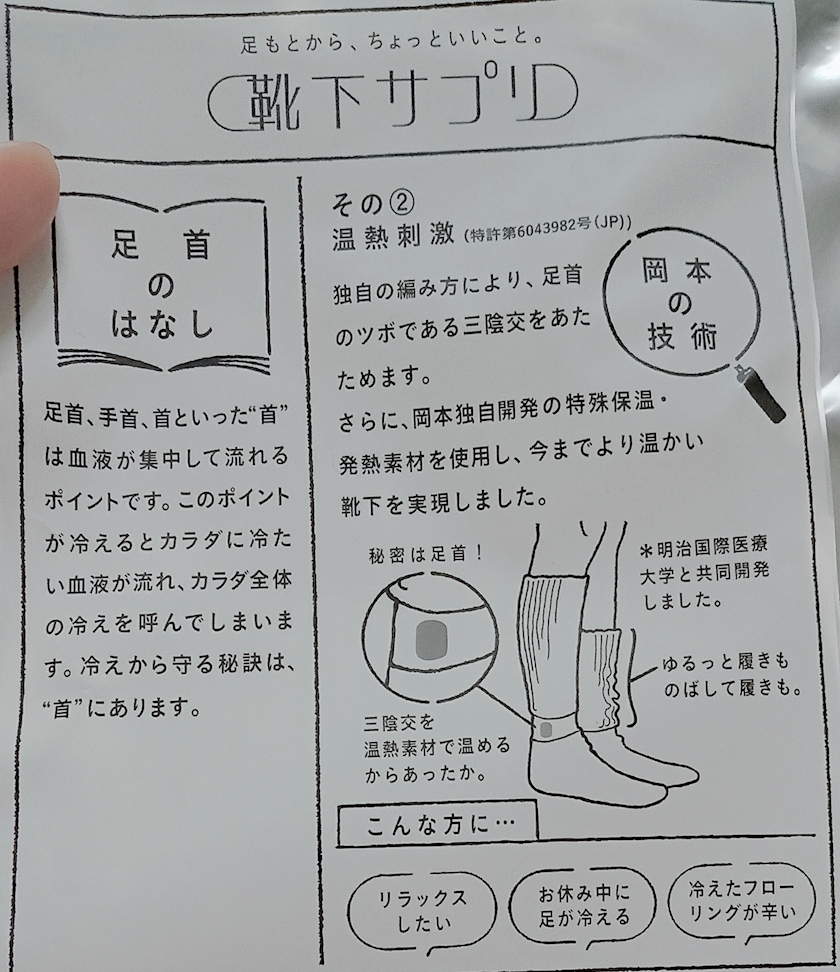 足もとから、ちょっといいこと。
靴下サプリ
足首
の
はなし
足首、手首、首といった“首”
は血液が集中して流れる
ポイントです。このポイント
が冷えるとカラダに冷た
い血液が流れ、カラダ全体
の冷えを呼んでしまいま
す。冷えから守る秘訣は、
“首”にあります。
その②
温熱刺激(特許第6043982号(JP))
岡本
の
技術
独自の編み方により、足首
のツボである三陰交をあた
ためます。
さらに、岡本独自開発の特殊保温・
発熱素材を使用し、今までより温かい
靴下を実現しました。
秘密は足首！
＊明治国際医療
大学と共同開発
しました。
ゆるっと履きも
のばして履きも。
三陰交を
温熱素材で温める
からあったか。
こんな方に…
リラックス
したい
お休み中に
足が冷える
冷えたフロー
リングが辛い